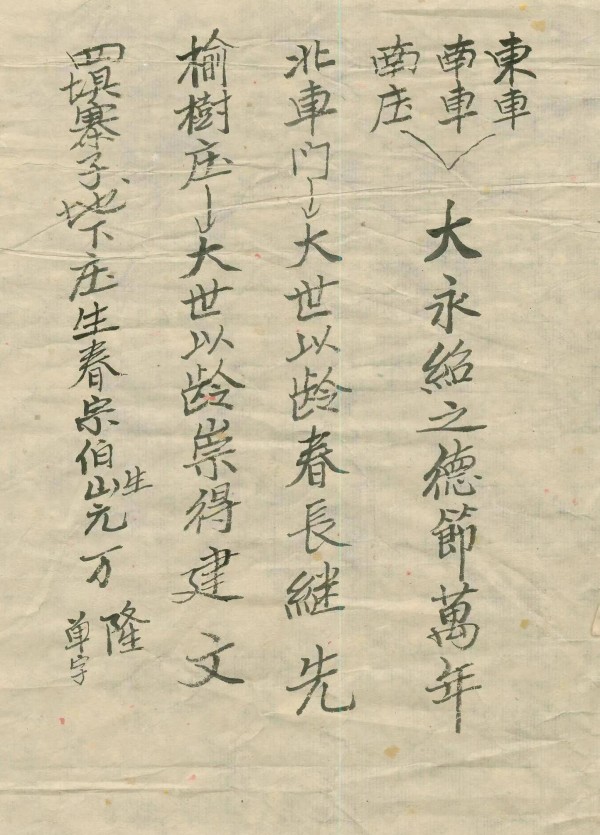 東車
南車
南庄
大永紹之德節萬年
北車门
大世以龄春長継先
榆樹庄
大世以龄崇得建文
四埧寨子地下庄生春宗伯山元万
生
隆
单字